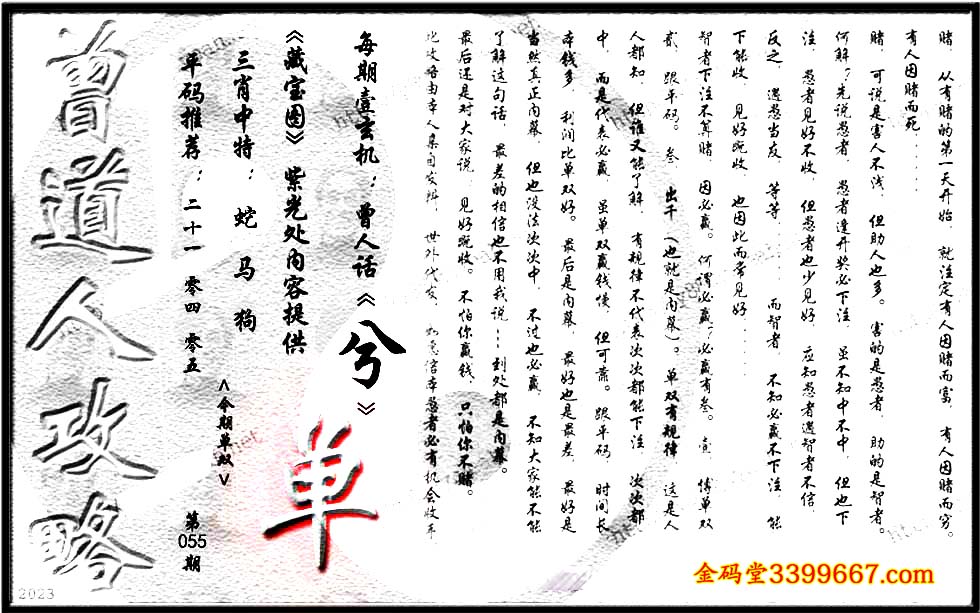 赌，从有赌的第一天开始，就注定有人因赌而富，有人因赌而穷。
有人因赌而死……
赌，可说是害人不浅，但助人也多。害的是愚者，助的是智者。
何解？先说愚者，愚者逢开奖必下注，虽不知中不中，但也下
注，愚者见好不收，但愚者也少见好，应知愚者遇智者不信，
反之，遇愚当友，等等……而智者，不知必赢不下注，能
下能收，见好就收，也因此而常见好……
智者下注不算赌，因必赢。何谓必赢？必赢有叁。壹，博单双
贰，跟平码。叁，出千（也就是内幕）。单双有规律，这是人
人都知，但谁又能了解，有规律不代表次次都能下注，次次都
中，而是代表必赢，虽单双赢钱慢，但可靠。跟平码，时间长
本钱多，利润比单双好。最后是内幕，最好也是最差，最好是
当然真正内幕，但也没法次次中，不过也必赢，不知大家能不
了解这句话，最差的相信也不用我说……到处都是内幕。
最后还是对大家说，见好就收。不怕你赢钱，只怕你不赌。
此攻略由本人亲自发辨，世外代友，如意信本愚者必有机会收年
每期壹玄机：曾人话《兮》
《藏宝图》紫光处内容提供
三肖中特：蛇 马 狗
平码推荐：二十一 零四 零五
<今期单双>
单
第
055
期
曾道人攻略
2023
金码堂3399667.com